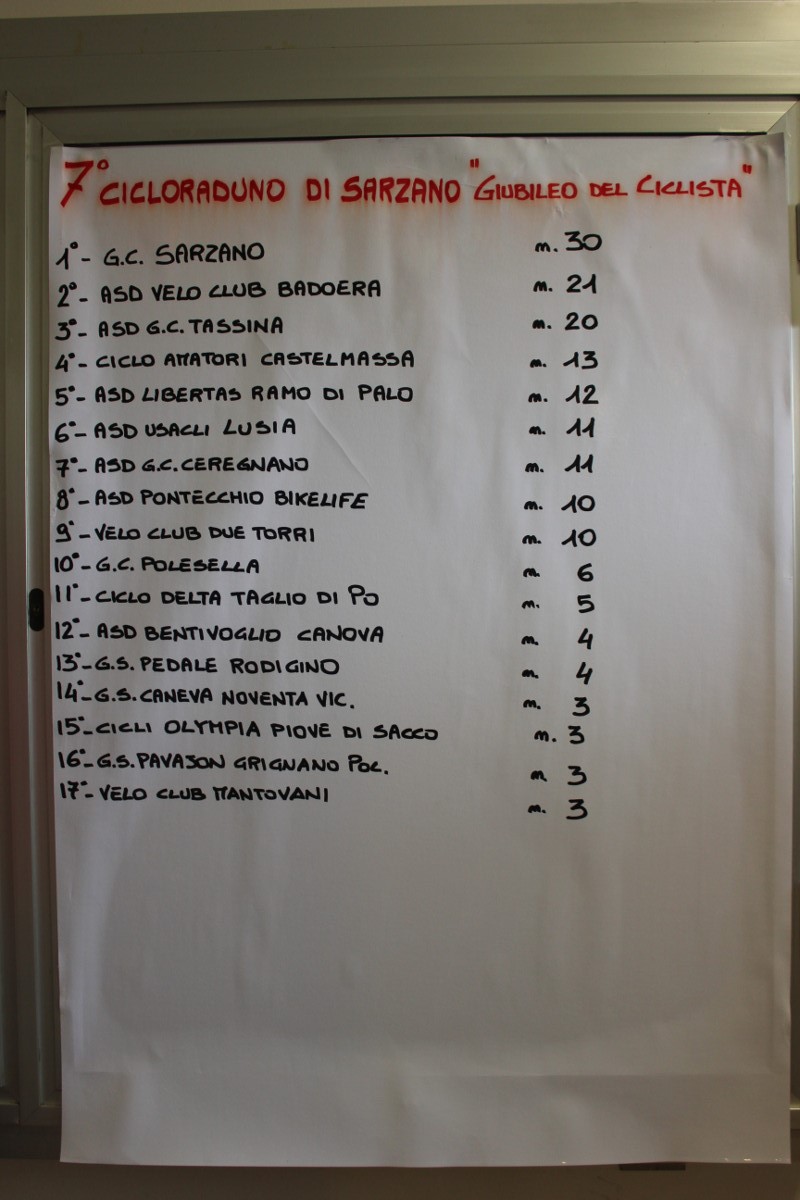 7° CICLORADUNO DI SARZANO "GIUBILEO DEL CICLISTA"
1°- G.C. SARZANO n. 30
2°- ASD VELO CLUB BADOERA n. 21
3°- ASD G.C. TASSINA n. 20
4°- CICLO AMATORI CASTELMASSA n. 13
5°- ASD LIBERTAS RAMO DI PALO n. 12
6°- ASD USACLI LUSIA n. 11
7°- ASD G.C. CEREGNANO n. 11
8°- ASD PONTECCHIO BIKELIFE n. 10
9°- VELO CLUB DUE TORRI n. 10
10°- G.C. POLESELLA n. 6
11°- CICLO DELTA TAGLIO DI PO n. 5
12°- ASD BENTIVOGLIO CANOVA n. 4
13°- G.S. PEDALE RODIGINO n. 4
14°- G.S. CANEVA NOVENTA VIC. n. 3
15°- CICLI OLYMPIA PIOVE DI SACCO n. 3
16°- G.S. PAVAJON GRIGNANO POL. n 3
17°- VELO CLUB MANTOVANI n. 3